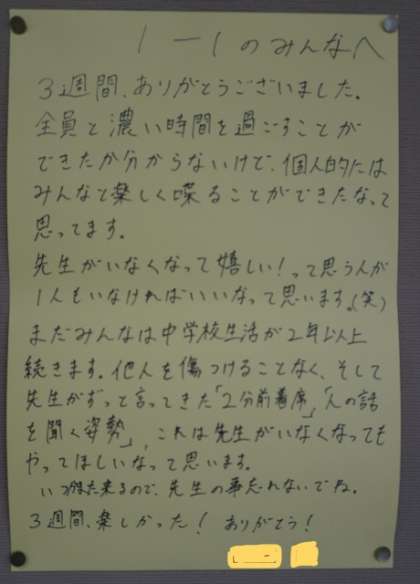 1-1のみんなへ
3週間、ありがとうございました。
全員と濃い時間を過ごすことが
できたか分からないけど、個人的には
みんなと楽しく喋ることができたなって
思ってます。
先生がいなくなって嬉しい!って思う人が
1人もいなければいいなって思います。(笑)
まだみんなは中学校生活が2年以上
続きます。他人を傷つけることなく、そして
先生がずっと言ってきた「2分前着席」「人の話
を聞く姿勢」、これは先生がいなくなっても
やってほしいなって思います。
いつかまた来るので、先生の事忘れないでね。
3週間、楽しかった!ありがとう!